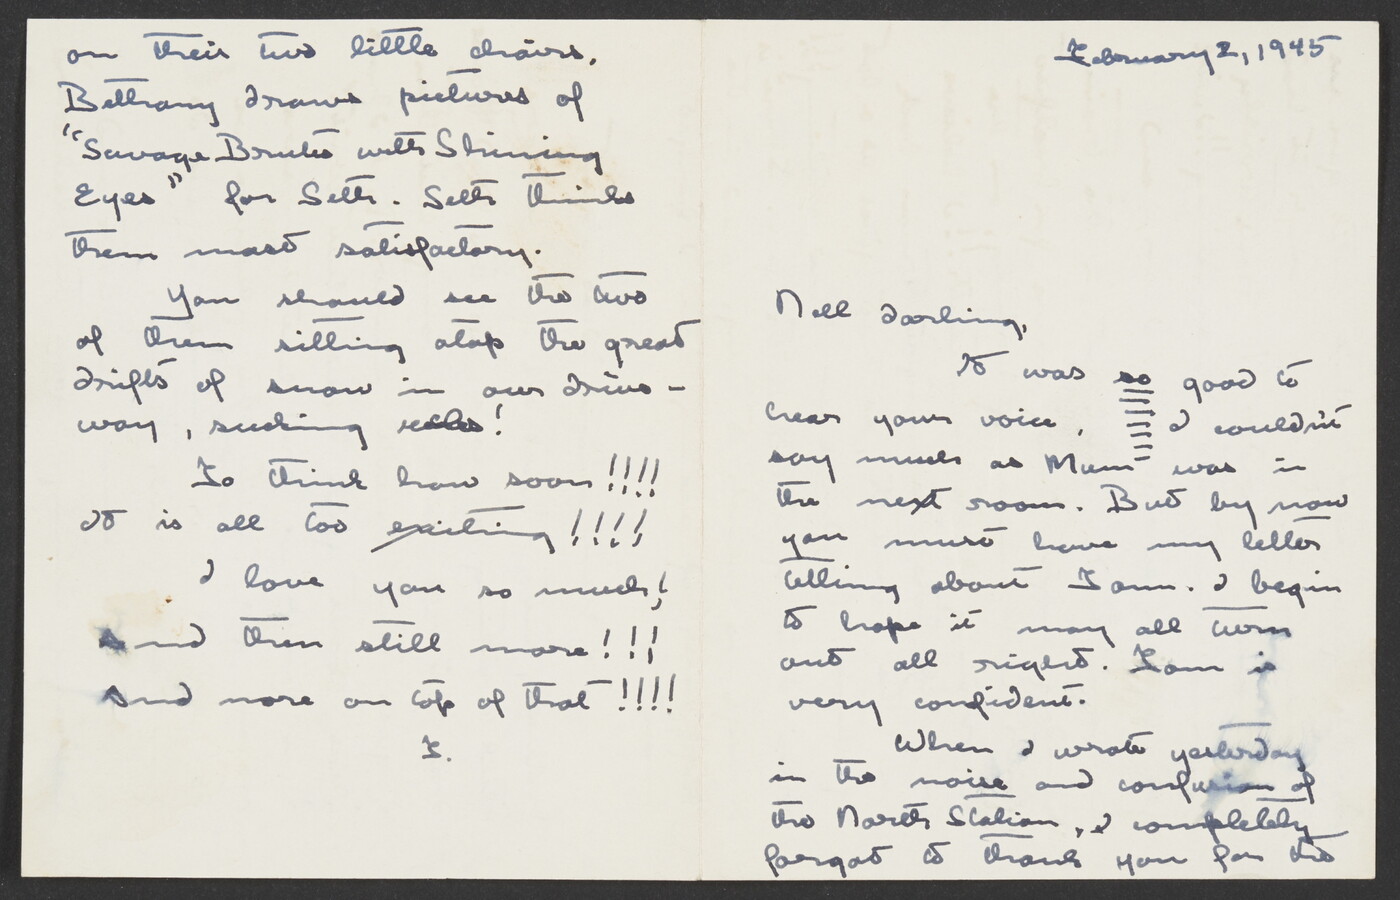 on their two little chairs.
Bethany draws pictures of
"Savage Brutes with Shining
Eyes" for Seth. Seth thinks
them most satisfactory.
You should see the two
of them sitting atop the great
drifts of snow in our drive-
way, sucking icicles!
To think how soon!!!!
It is all too exciting!!!!
I love you so much!
And then still more!!!
And more on top of that!!!!
February 2, 1945
Nell darling,
It was so good to
hear your voice. I couldn't
say much as Mum was in
the next room. But by now
you must have my letter
telling about Tom. I begin
to hope it may all turn
out all right. Tom is
very confident.
When I wrote yesterday
in the noise and confusion of
the North Station, I completely
forgot to thank you for the